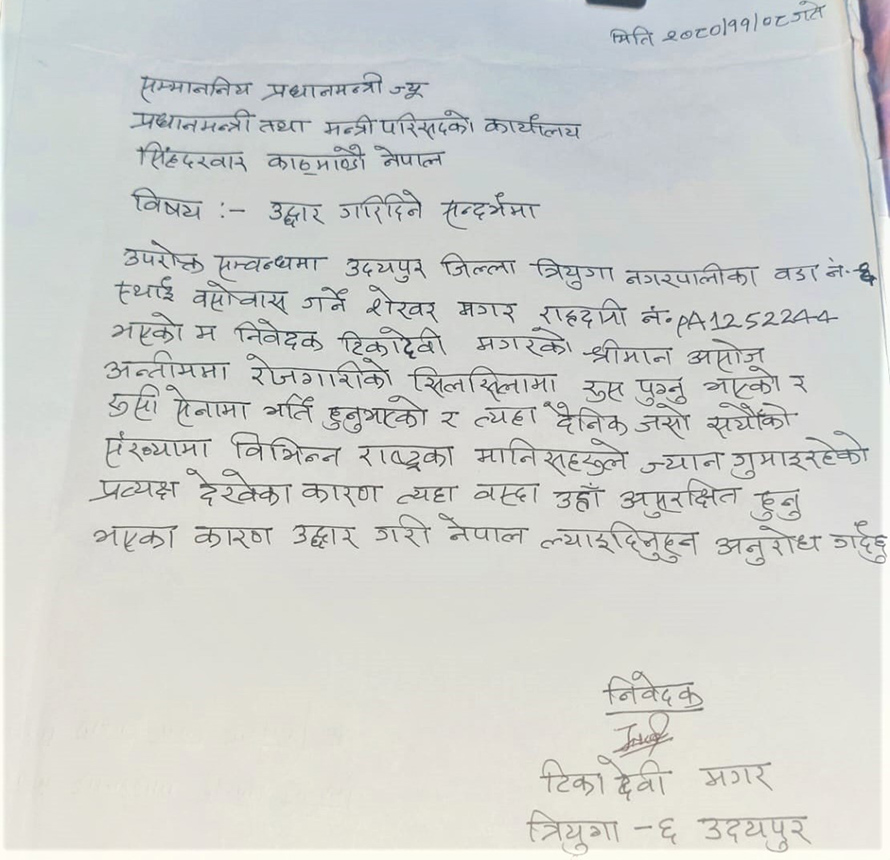 मिति २०८०।११।०८ गते
सम्माननिय प्रधानमन्त्री ज्यू
प्रधानमन्त्री तथा मन्त्रीपरिसदको कार्यालय
सिंहदरवार काठ्माण्डौ नेपाल
विषय :- उद्धार गरिदिने सन्दर्भमा
उपरोक्त सम्वन्धमा उदयपुर जिल्ला त्रियुगा नगरपालीका वडा नं. ६
स्थाई वसोवास गर्ने शेखर मगर राहदानी नं. PA1252244
भएको म निवेदक टिकादेवी मगरको श्रीमान असोज
अन्तीममा रोजगारीको सिलसिलामा रुस पुग्नु भएको र
रुसी सेनामा भर्ति हुनुभएको र त्यहा दैनिक जसो सयौंको
संख्यामा विभिन्न राष्ट्रका मानिसहरुले ज्यान गुमाइरहेको
प्रत्यक्ष देखेका कारण त्यहा वस्दा उहाँ असुरक्षित हुनु
भएका कारण उद्धार गरी नेपाल ल्याइदिनुहुन अनुरोध गर्दछु
निवेदक
टिका देवी मगर
त्रियुगा -६ उदयपुर